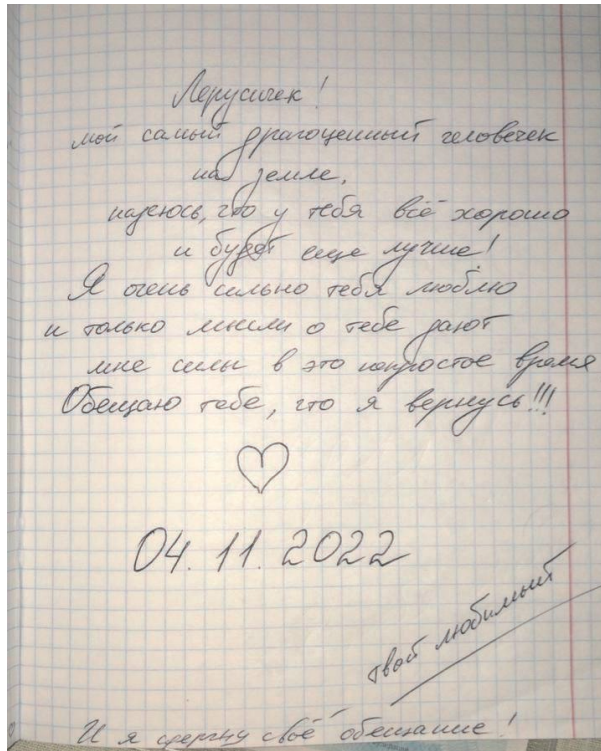 Лерусичек!
мой самый драгоценный человечек
на земле,
надеюсь, что у тебя всё хорошо
и будет еще лучше!
Я очень сильно тебя люблю
и только мысли о тебе дают
мне силы в это непростое время
Обещаю тебе, что я вернусь!!!
04.11.2022
твой любимый
И я сдержу своё обещание!